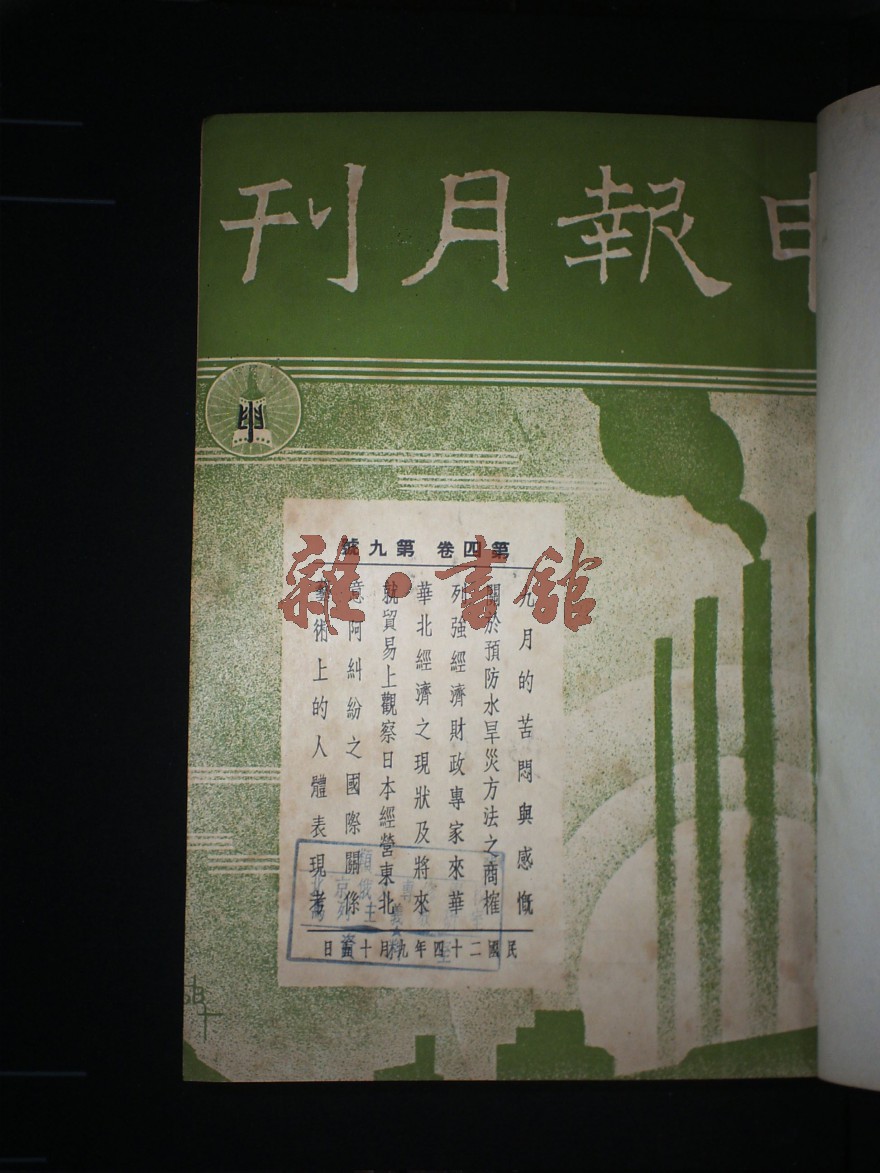 申報月刊
申
第四卷 第九號
九月的苦悶與感慨
關於預防水旱災方法之商榷
列強經濟財政專家來華
華北經濟之現狀及將來
就貿易上觀察日本經營東北
意阿糾紛之國際關係
藝術上的人體表現考
民國二十四年九月十五日
雜·書館